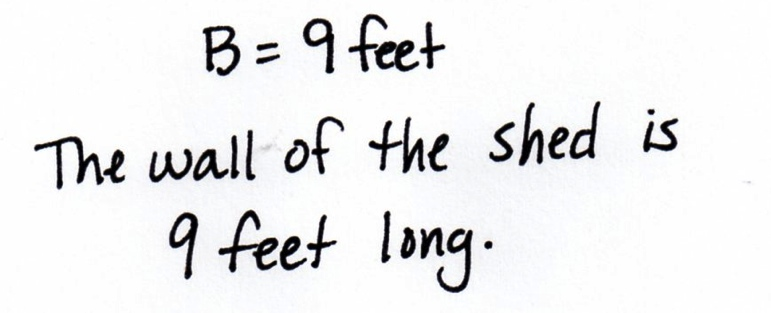 B = 9 feet
The wall of the shed is
9 feet long.